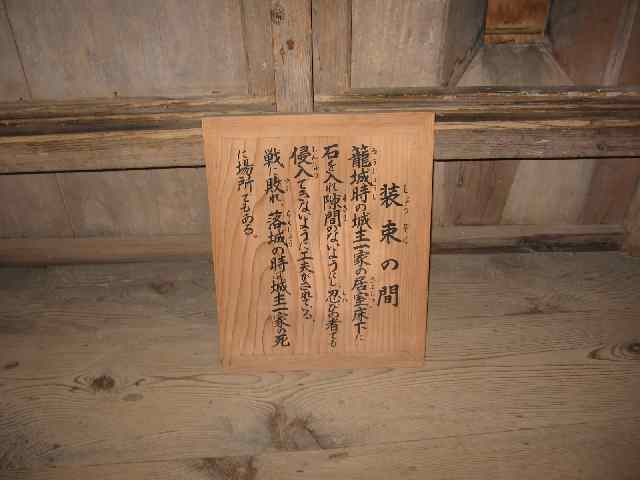 装束の間
籠城時の城主一家の居室床下に
石を入れ隙間のないようにし、忍びの者でも
侵入できないように工夫がされている。
戦に敗れ、落城の時は城主一家の死
に場所でもある。